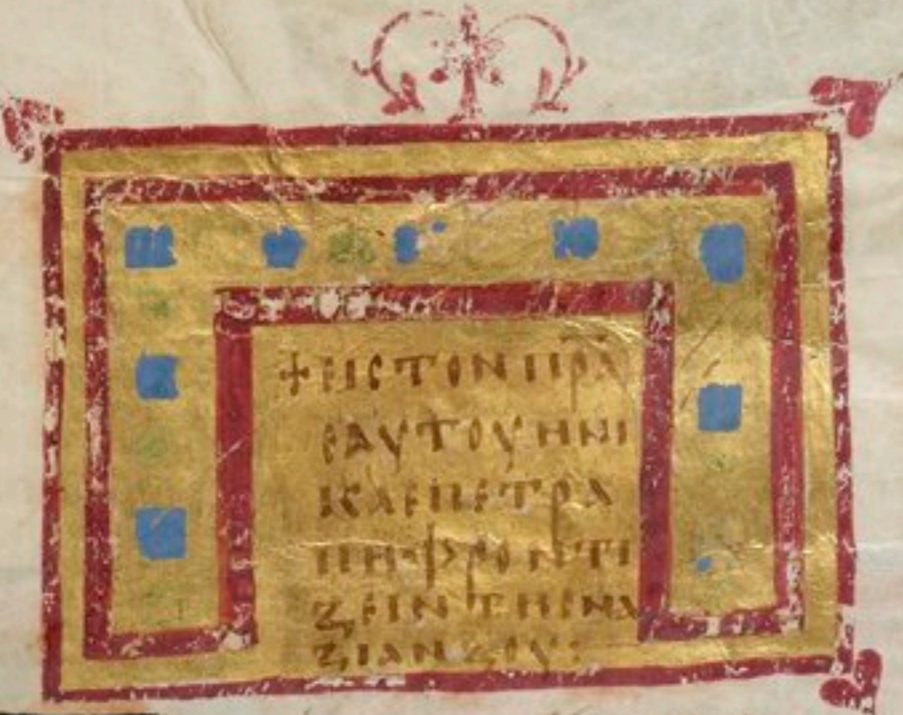 +ΕΙΣ ΤΟΝ ΠΡ̅Α̅
ΕΑΥΤΟΥ ΗΝΙ
ΚΑ ΕΠΕΤΡΑ
ΠΗ ΦΡΟΝΤΙ
ΖΕΙΝ ΤΗΣ ΝΑ
ΖΙΑΝΖΟΥ: